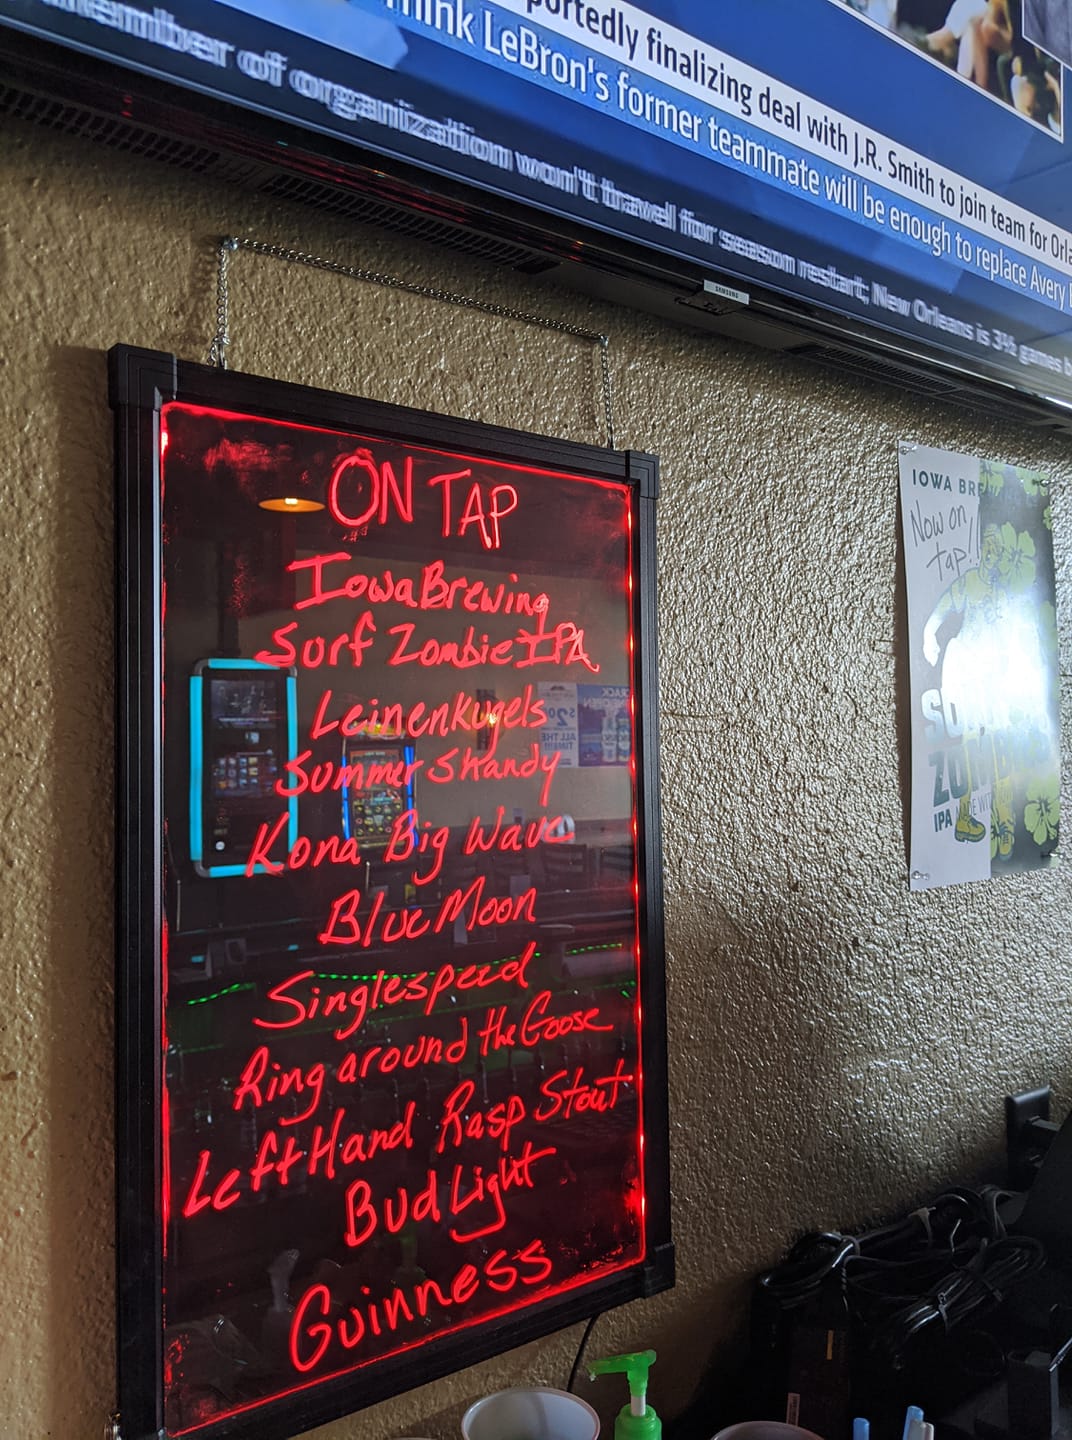 portedly finalizing deal with J.R. Smith to join team for Orla
think LeBron's former teammate will be enough to replace Avery
Member of organization won't travel for season restart; New Orleans is 3½ games b
SAMSUNG
ON TAP
Iowa Brewing
Surf Zombie IPA
Leinenkugels
Summer Shandy
Kona Big Wave
Blue Moon
Singlespeed
Ring around the Goose
Left Hand Rasp Stout
Bud Light
Guinness
IOWA BRE
Now on
tap!!
ZOMB
IPA